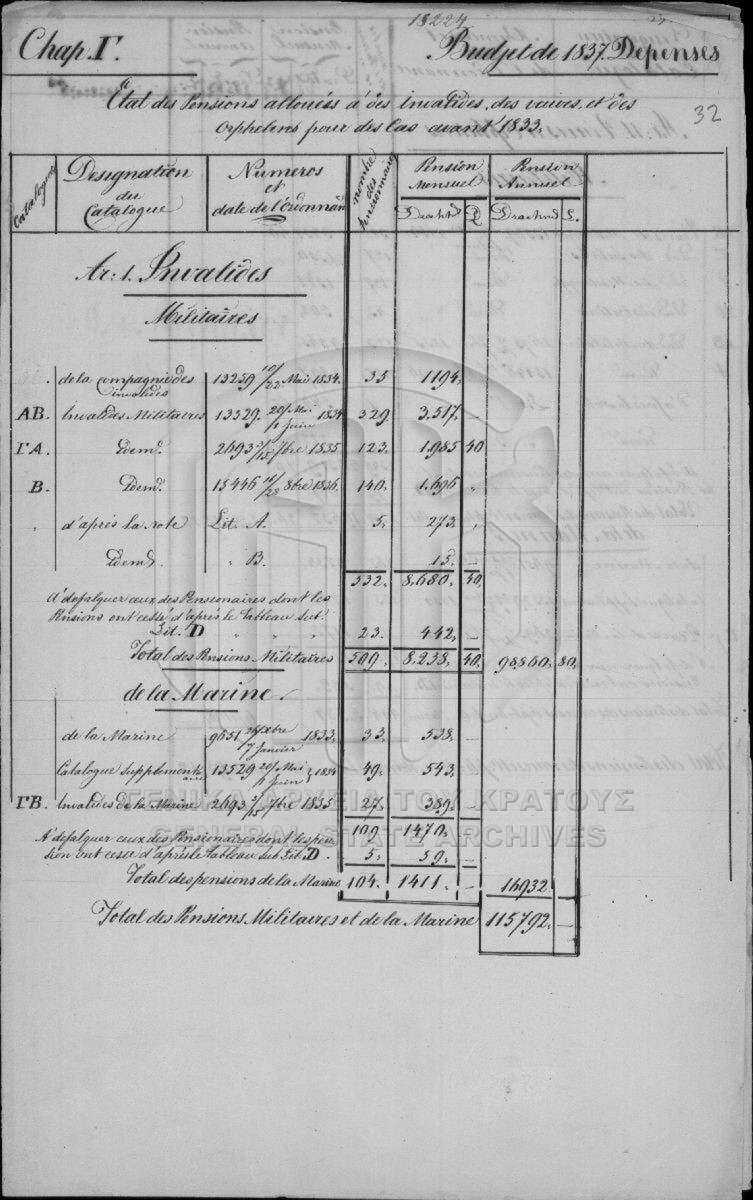 18224
Chap. Γ. Budjet de 1837. Depenses
32
Etat des Pensions allouées à des invalides, des veuves, et des
Orphelins pour des Cas avant 1833.
Catalogue
Designation du Catalogue
Numeros et date de l'Ordonnan
nombre des pensionnaires
Pension Mensuel
Pension Annuel
Drachm L. Drachm L.
Ar: 1. Invalides
Militaires
. de la compagnie des invalides 13259 10/22 Mai 1834. 35 1194.
AB. Invalides Militaires 13529. 20/Mai 1/Juin 1834 329. 3.517. —
ΓA. Idem. 2693 3/15 7bre 1835 123. 1.985 40
B. Idem. 15446 16/28 8bre 1836. 140. 1.696 "
" d'après la note Lit. A. 5. 273. "
Idem. " B. 15. —
532. 8.680. 40.
A défalquer ceux des Pensionaires dont les
Pensions ont cessé d'après le Tableau sub.
Lit. D " " " " 23. 442. —
Total des Pensions Militaires 509. 8.238. 40. 98.860. 80.
de la Marine.
de la Marine 9651. 26/Xbre 7/Janvier 1833. 33. 538. —
Catalogue Supplementaire 13529 20/Mai 1/Juin 1834 49. 543. —
ΓB. Invalides de la Marine 2693 3/15 7bre 1835 27. 389. —
109. 1470. —
A défalquer ceux des Pensionaires dont les pen-
sion ont cessé d'après le Tableau sub Lit. D 5. 59. —
Total des pensions de la Marine 104. 1411. — 16932. —
Total des Pensions Militaires et de la Marine 115792. —
ΓΕΝΙΚΑ ΑΡΧΕΙΑ ΤΟΥ ΚΡΑΤΟΥΣ
GENERAL STATE ARCHIVES